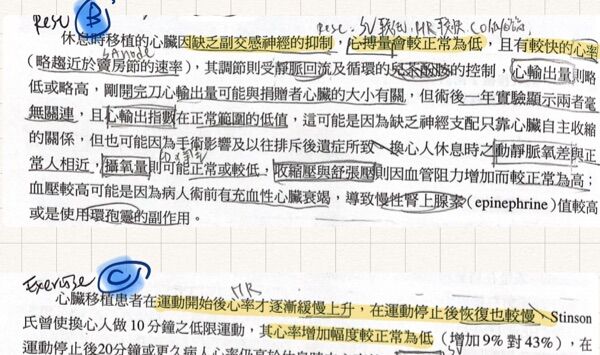 rest B
rest. SV較低, HR較快 CO
休息時移植的心臟因缺乏副交感神經的抑制，心搏量會較正常為低，且有較快的心率
SA node
（略趨近於竇房節的速率），其調節則受靜脈回流及循環的兒茶酚胺的控制，心輸出量則略
低或略高，剛開完刀心輸出量可能與捐贈者心臟的大小有關，但術後一年實驗顯示兩者毫
無關連，且心輸出指數在正常範圍的低值，這可能是因為缺乏神經支配只靠心臟自主收縮
的關係，但也可能因為手術影響及以往排斥後遺症所致。換心人休息時之動靜脈氧差與正
常人相近，攝氧量則可能正常或較低，收縮壓與舒張壓則因血管阻力增加而較正常為高；
血壓較高可能是因為病人術前有充血性心臟衰竭，導致慢性腎上腺素（epinephrine）值較高
或是使用環孢靈的副作用。
Exercise C
HR
心臟移植患者在運動開始後心率才逐漸緩慢上升，在運動停止後恢復也較慢，Stinson
氏曾使換心人做10分鐘之低限運動，其心率增加幅度較正常為低（增加9% 對 43%），在
運動停止後20分鐘或更久病人心率仍高於休息時